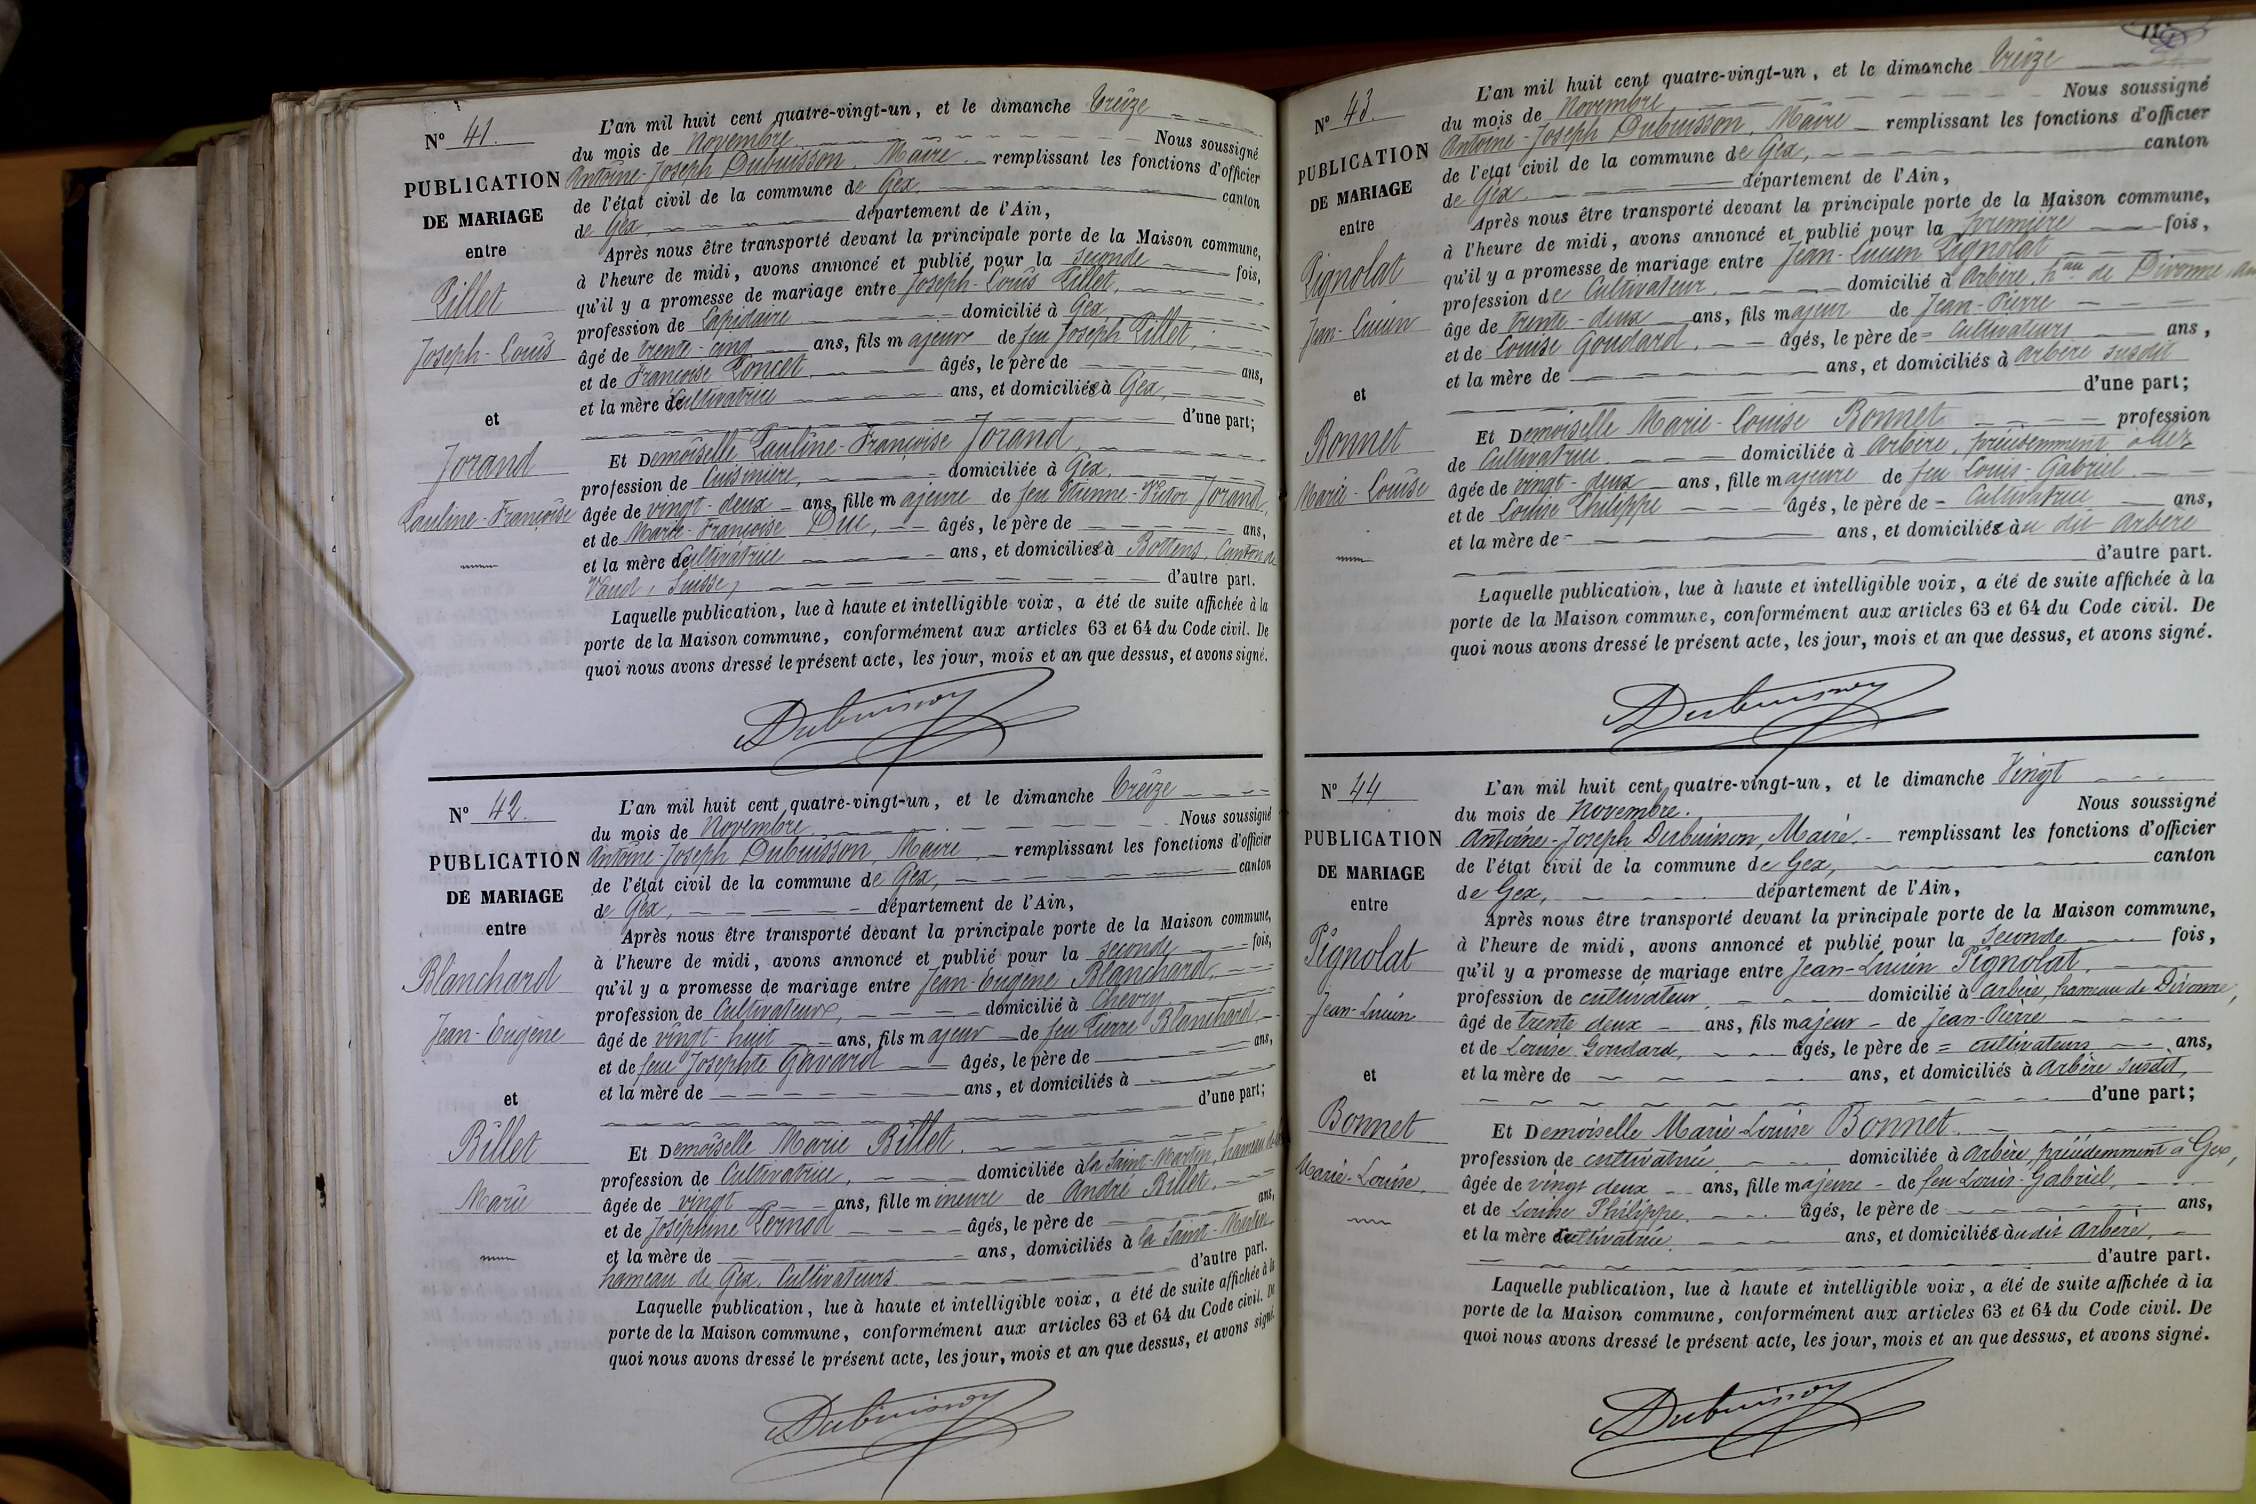 N° 41.
PUBLICATION
DE MARIAGE
entre
Pillet
Joseph-Louis
et
Jorand
Pauline-Françoise
L'an mil huit cent quatre-vingt-un, et le dimanche treize
du mois de Novembre Nous soussigné
Antoine-Joseph Dubuisson, Maire remplissant les fonctions d'officier
de l'état civil de la commune de Gex, canton
de Gex, département de l'Ain,
Après nous être transporté devant la principale porte de la Maison commune,
à l'heure de midi, avons annoncé et publié pour la seconde fois,
qu'il y a promesse de mariage entre Joseph-Louis Pillet,
profession de Lapidaire domicilié à Gex,
âgé de trente-cinq ans, fils majeur de feu Joseph Pillet,
et de Françoise Poncet âgés, le père de ans,
et la mère de Cultivatrice ans, et domiciliés à Gex,
d'une part;
Et Demoiselle Pauline-Françoise Jorand,
profession de Cuisinière, domiciliée à Gex,
âgée de vingt-deux ans, fille majeure de feu Etienne-Victor Jorand,
et de Marie-Françoise Duc, âgés, le père de ans,
et la mère de Cultivatrice ans, et domiciliés à Bottens, Canton de
Vaud, Suisse, d'autre part.
Laquelle publication, lue à haute et intelligible voix, a été de suite affichée à la
porte de la Maison commune, conformément aux articles 63 et 64 du Code civil. De
quoi nous avons dressé le présent acte, les jour, mois et an que dessus, et avons signé.
Dubuisson
N° 42.
PUBLICATION
DE MARIAGE
entre
Blanchard
Jean-Eugène
et
Billet
Marie
L'an mil huit cent quatre-vingt-un, et le dimanche treize
du mois de Novembre Nous soussigné
Antoine-Joseph Dubuisson, Maire remplissant les fonctions d'officier
de l'état civil de la commune de Gex, canton
de Gex, département de l'Ain,
Après nous être transporté devant la principale porte de la Maison commune,
à l'heure de midi, avons annoncé et publié pour la seconde fois,
qu'il y a promesse de mariage entre Jean-Eugène Blanchard,
profession de Cultivateur, domicilié à Chevry,
âgé de vingt-huit ans, fils majeur de feu Pierre Blanchard
et de feue Josephte Gavard âgés, le père de ans,
et la mère de ans, et domiciliés à
d'une part;
Et Demoiselle Marie Billet,
profession de Cultivatrice, domiciliée à la Saint-Martin, hameau de
âgée de vingt ans, fille mineure de André Billet,
et de Joséphine Pernod âgés, le père de ans,
et la mère de ans, domiciliés à la Saint-Martin
hameau de Gex, Cultivateurs. d'autre part.
Laquelle publication, lue à haute et intelligible voix, a été de suite affichée à la
porte de la Maison commune, conformément aux articles 63 et 64 du Code civil. De
quoi nous avons dressé le présent acte, les jour, mois et an que dessus, et avons signé.
Dubuisson
N° 43.
PUBLICATION
DE MARIAGE
entre
Pignolat
Jean-Lucien
et
Bonnet
Marie-Louise
L'an mil huit cent quatre-vingt-un, et le dimanche treize
du mois de Novembre, Nous soussigné
Antoine-Joseph Dubuisson, Maire remplissant les fonctions d'officier
de l'état civil de la commune de Gex, canton
de Gex, département de l'Ain,
Après nous être transporté devant la principale porte de la Maison commune,
à l'heure de midi, avons annoncé et publié pour la première fois,
qu'il y a promesse de mariage entre Jean-Lucien Pignolat
profession de Cultivateur, domicilié à Arbère, hau de Divonne,
âgé de trente-deux ans, fils majeur de Jean-Pierre
et de Louise Goudard, âgés, le père de = Cultivateurs ans,
et la mère de ans, et domiciliés à Arbère susdit
d'une part;
Et Demoiselle Marie-Louise Bonnet profession
de Cultivatrice domiciliée à Arbère, précédemment à Gex
âgée de vingt-deux ans, fille majeure de feu Louis-Gabriel
et de Louise Philippe âgés, le père de = Cultivatrice ans,
et la mère de ans, et domiciliés au dit Arbère
d'autre part.
Laquelle publication, lue à haute et intelligible voix, a été de suite affichée à la
porte de la Maison commune, conformément aux articles 63 et 64 du Code civil. De
quoi nous avons dressé le présent acte, les jour, mois et an que dessus, et avons signé.
Dubuisson
N° 44
PUBLICATION
DE MARIAGE
entre
Pignolat
Jean-Lucien
et
Bonnet
Marie-Louise,
L'an mil huit cent quatre-vingt-un, et le dimanche Vingt
du mois de Novembre. Nous soussigné
Antoine-Joseph Dubuisson, Maire.- remplissant les fonctions d'officier
de l'état civil de la commune de Gex, canton
de Gex, département de l'Ain,
Après nous être transporté devant la principale porte de la Maison commune,
à l'heure de midi, avons annoncé et publié pour la seconde fois,
qu'il y a promesse de mariage entre Jean-Lucien Pignolat,
profession de cultivateur, domicilié à Arbère, hameau de Divonne,
âgé de trente deux ans, fils majeur de Jean-Pierre
et de Louise Goudard, âgés, le père de = cultivateurs ans,
et la mère de ans, et domiciliés à Arbère susdit,
d'une part;
Et Demoiselle Marie-Louise Bonnet,
profession de cultivatrice, domiciliée à Arbère, précédemment à Gex,
âgée de vingt deux ans, fille majeure de feu Louis-Gabriel,
et de Louise Philippe, âgés, le père de ans,
et la mère cultivatrice, ans, et domiciliés audit Arbère,
d'autre part.
Laquelle publication, lue à haute et intelligible voix, a été de suite affichée à la
porte de la Maison commune, conformément aux articles 63 et 64 du Code civil. De
quoi nous avons dressé le présent acte, les jour, mois et an que dessus, et avons signé.
Dubuisson